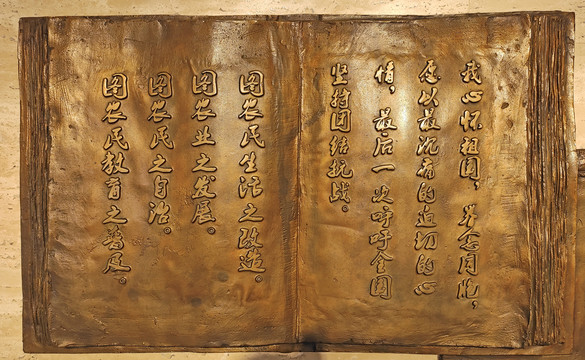 我心怀祖国，关念同胞，
愿以最沉痛的迫切的心
情，最后一次呼吁全国
坚持团结抗战。
图农民生活之改造。
图农业之发展。
图农民之自治。
图农民教育之普及。